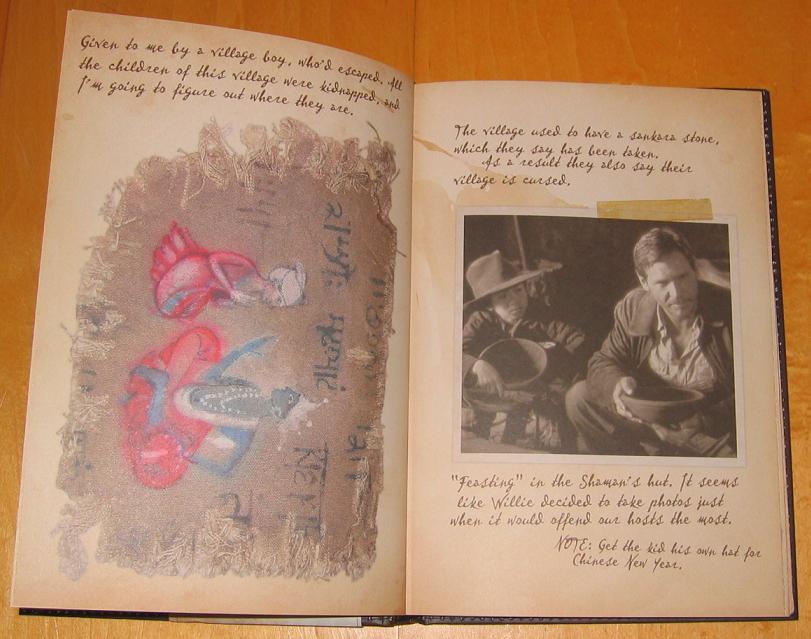 Given to me by a village boy, who'd escaped. All
the children of this village were kidnapped, and
I'm going to figure out where they are.
The village used to have a sankara stone,
which they say has been taken.
As a result they also say their
village is cursed.
"Feasting" in the Shaman's hut. It seems
like Willie decided to take photos just
when it would offend our hosts the most.
NOTE: Get the kid his own hat for
Chinese New Year.